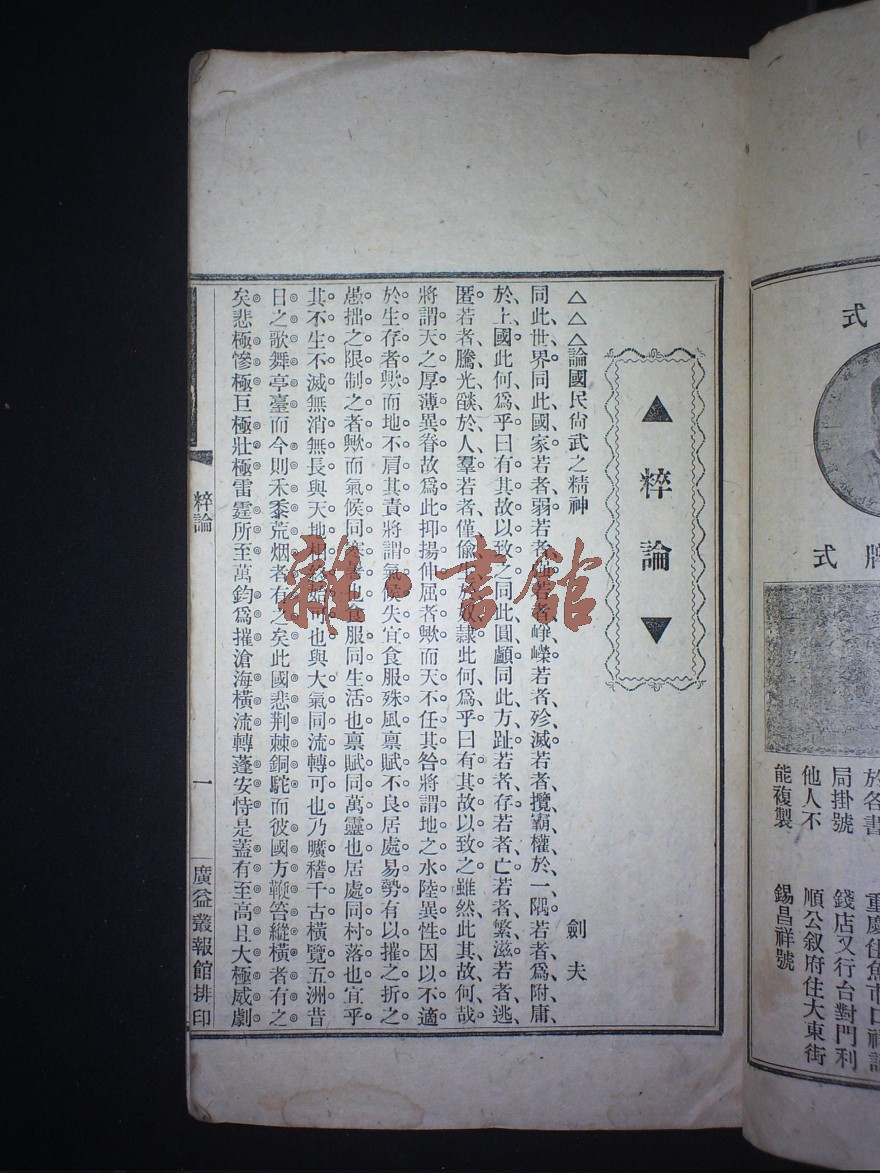 式
牌式
於各書
重慶住魚市口
局掛號
錢店又行台對門利
他人不
順公叙府住大東街
能複製
錫昌祥號
▲粹論▼
△△△論國民尙武之精神
劍夫
同此世界同此國家若者弱若者若者崢嶸若者殄滅若者攬霸權於一隅若者爲附庸
於上國此何爲乎曰有其故以致之同此圓顱同此方趾若者存若者亡若者繁滋若者逃
匿若者騰光燄於人羣若者僅偷奴隸此何爲乎曰有其故以致之雖然此其故何哉
將謂天之厚薄異眷故爲此抑揚伸屈者歟而天不任其咎將謂地之水陸異性因以不適
於生存者歟而地不肩其責將謂氣候失宜食服殊風禀賦不良居處易勢有以摧之折之
愚拙之限制之者歟而氣候同也食服同生活也禀賦同萬靈也居處同村落也宜乎
其不生不滅無消無長與天地相終始可也與大氣同流轉可也乃曠稽千古橫覽五洲昔
日之歌舞亭臺而今則禾黍荒烟者有之矣此國悲荆棘銅駝而彼國方鞭笞縱橫者有之
矣悲極慘極巨極壯極雷霆所至萬鈞爲摧滄海橫流轉蓬安恃是蓋有至高且大極威劇
粹論
一
廣益叢報館排印
雜·書館